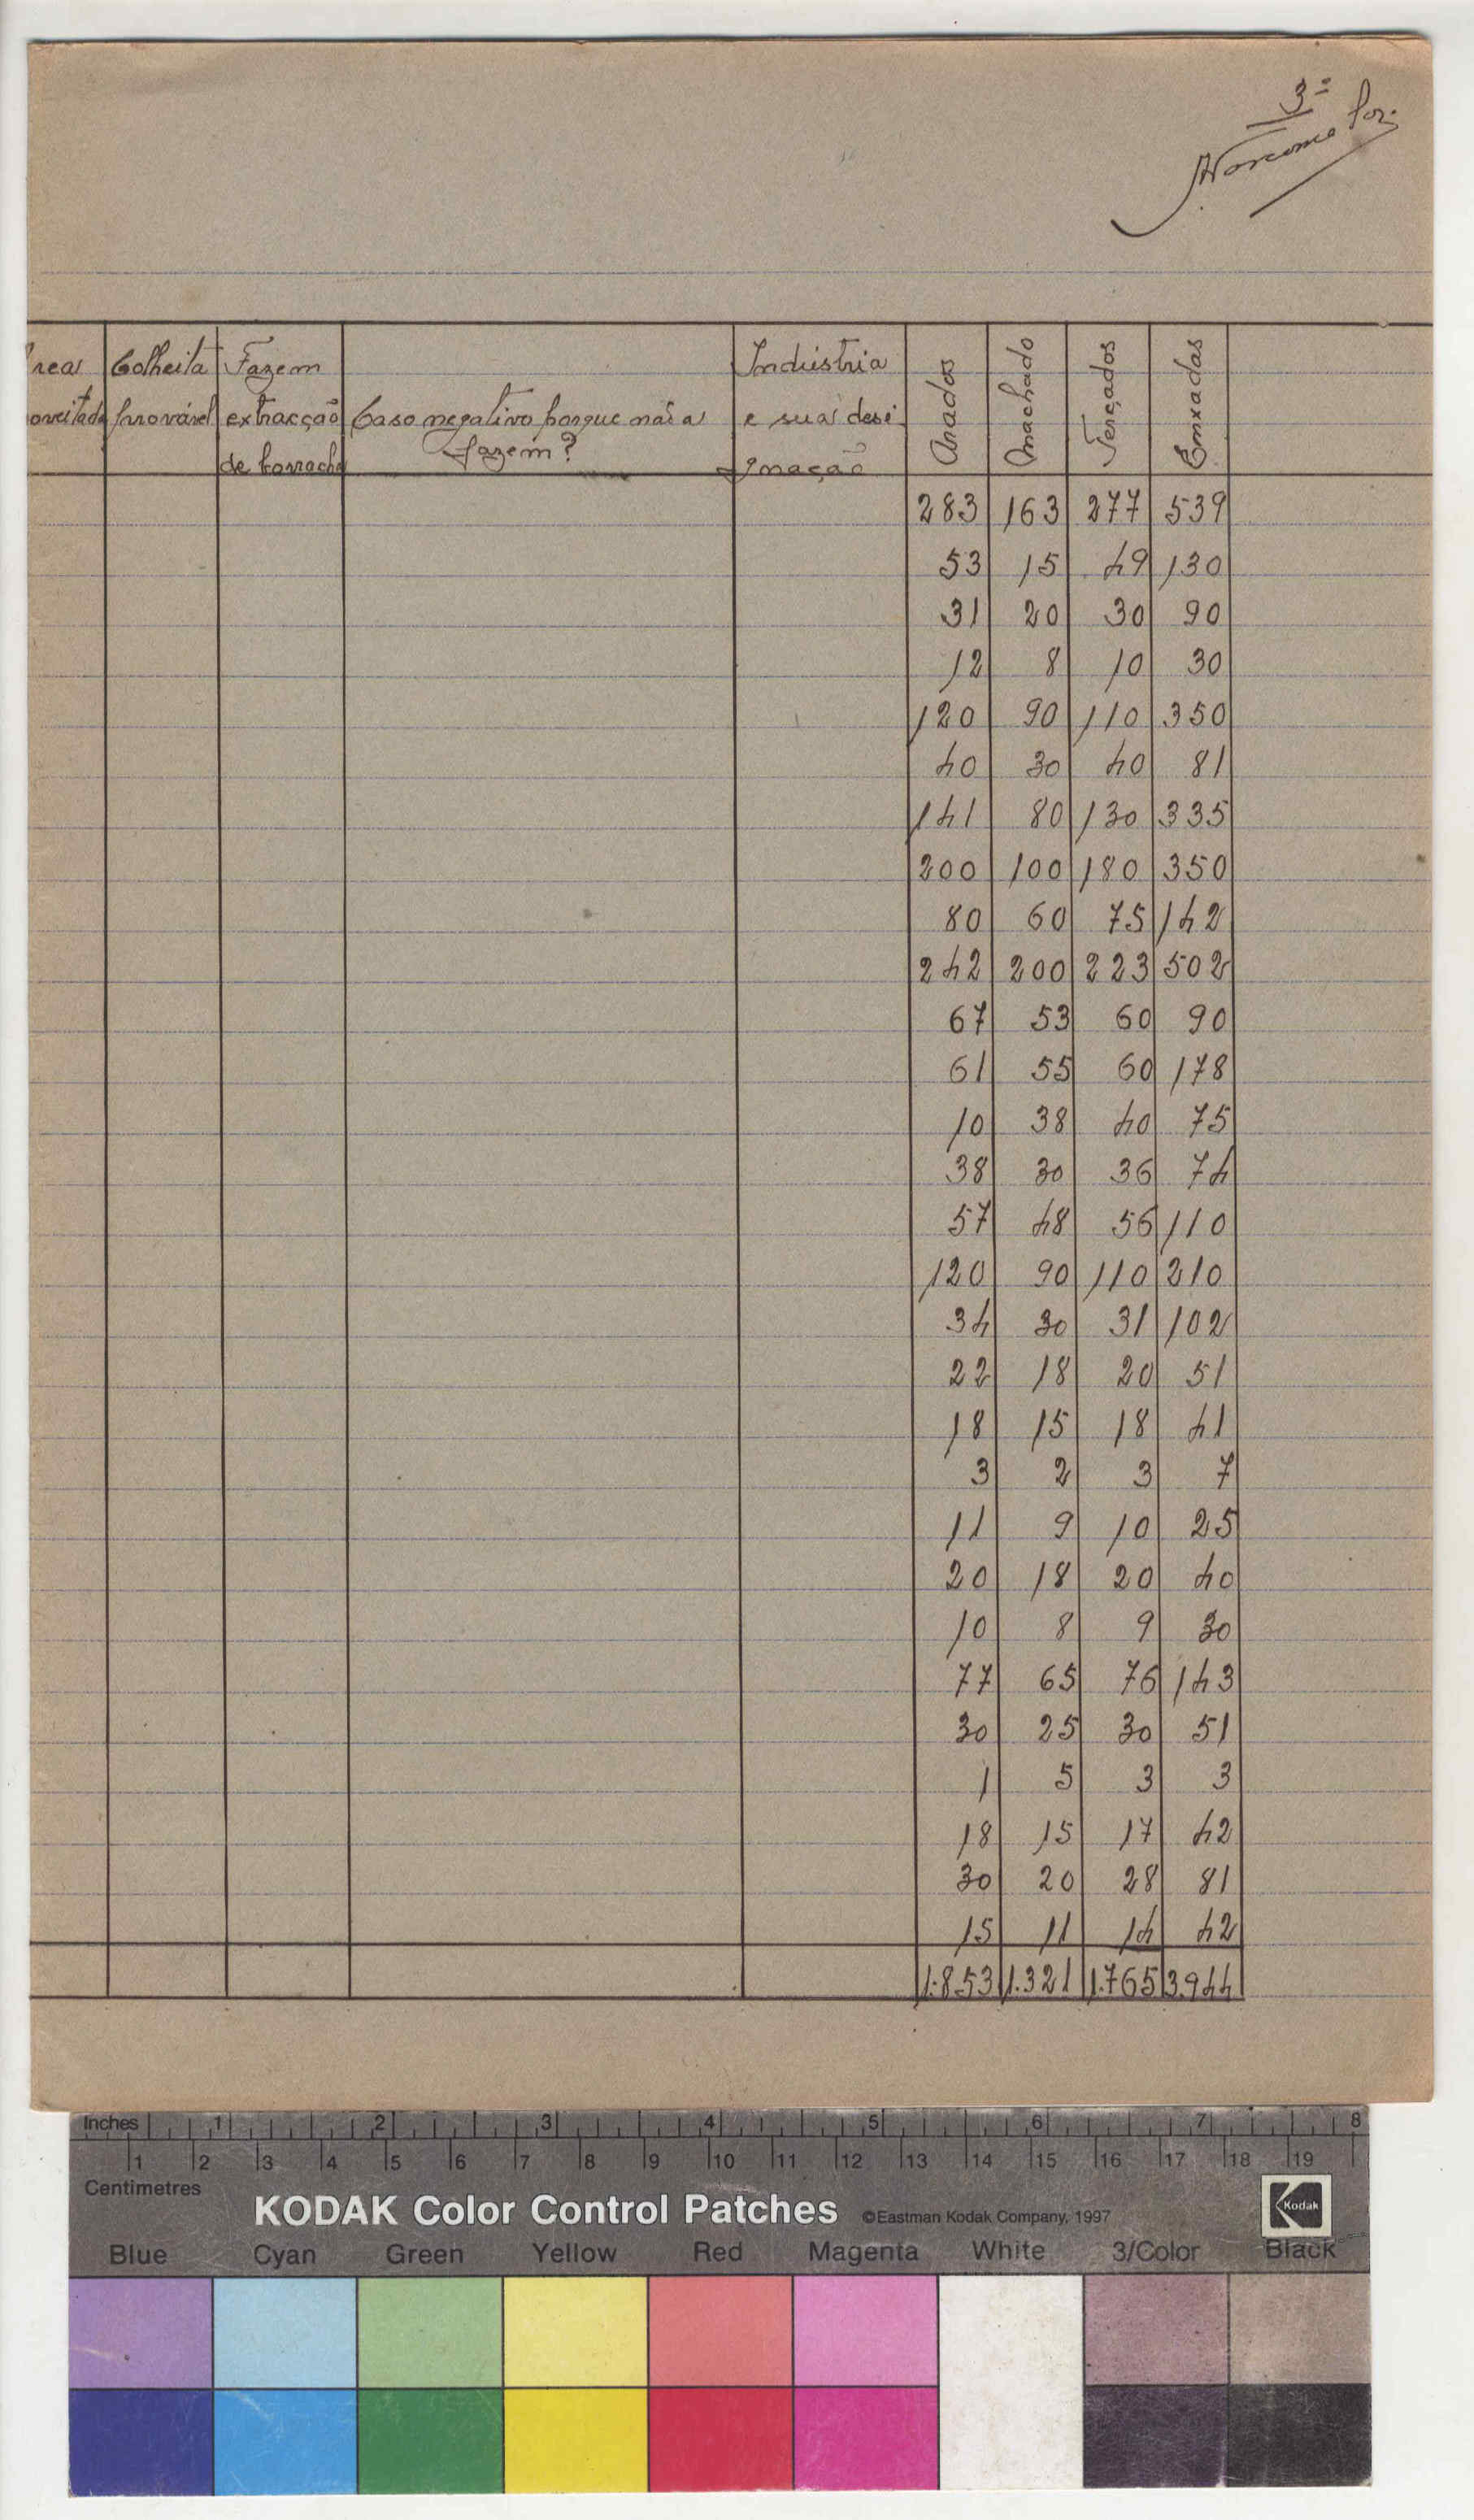 3ª
reas Colheita Fazem Industria
oveitada provável extracção Caso negativo porque não a e sua desi
de borracha fazem? gnação
Arados Machado Terçados Emxadas
283 163 277 539
53 15 49 130
31 20 30 90
12 8 10 30
120 90 110 350
40 30 40 81
141 80 130 335
200 100 180 350
80 60 75 142
242 200 223 502
67 53 60 90
61 55 60 178
10 38 40 75
38 30 36 74
57 48 56 110
120 90 110 210
34 30 31 102
22 18 20 51
18 15 18 41
3 2 3 7
11 9 10 25
20 18 20 40
10 8 9 30
77 65 76 143
30 25 30 51
1 5 3 3
18 15 17 42
30 20 28 81
15 11 14 42
1.853 1.321 1.765 3.944
Inches 1 2 3 4 5 6 7 8
1 2 3 4 5 6 7 8 9 10 11 12 13 14 15 16 17 18 19
Centimetres
KODAK Color Control Patches ©Eastman Kodak Company, 1997 Kodak
Blue Cyan Green Yellow Red Magenta White 3/Color Black